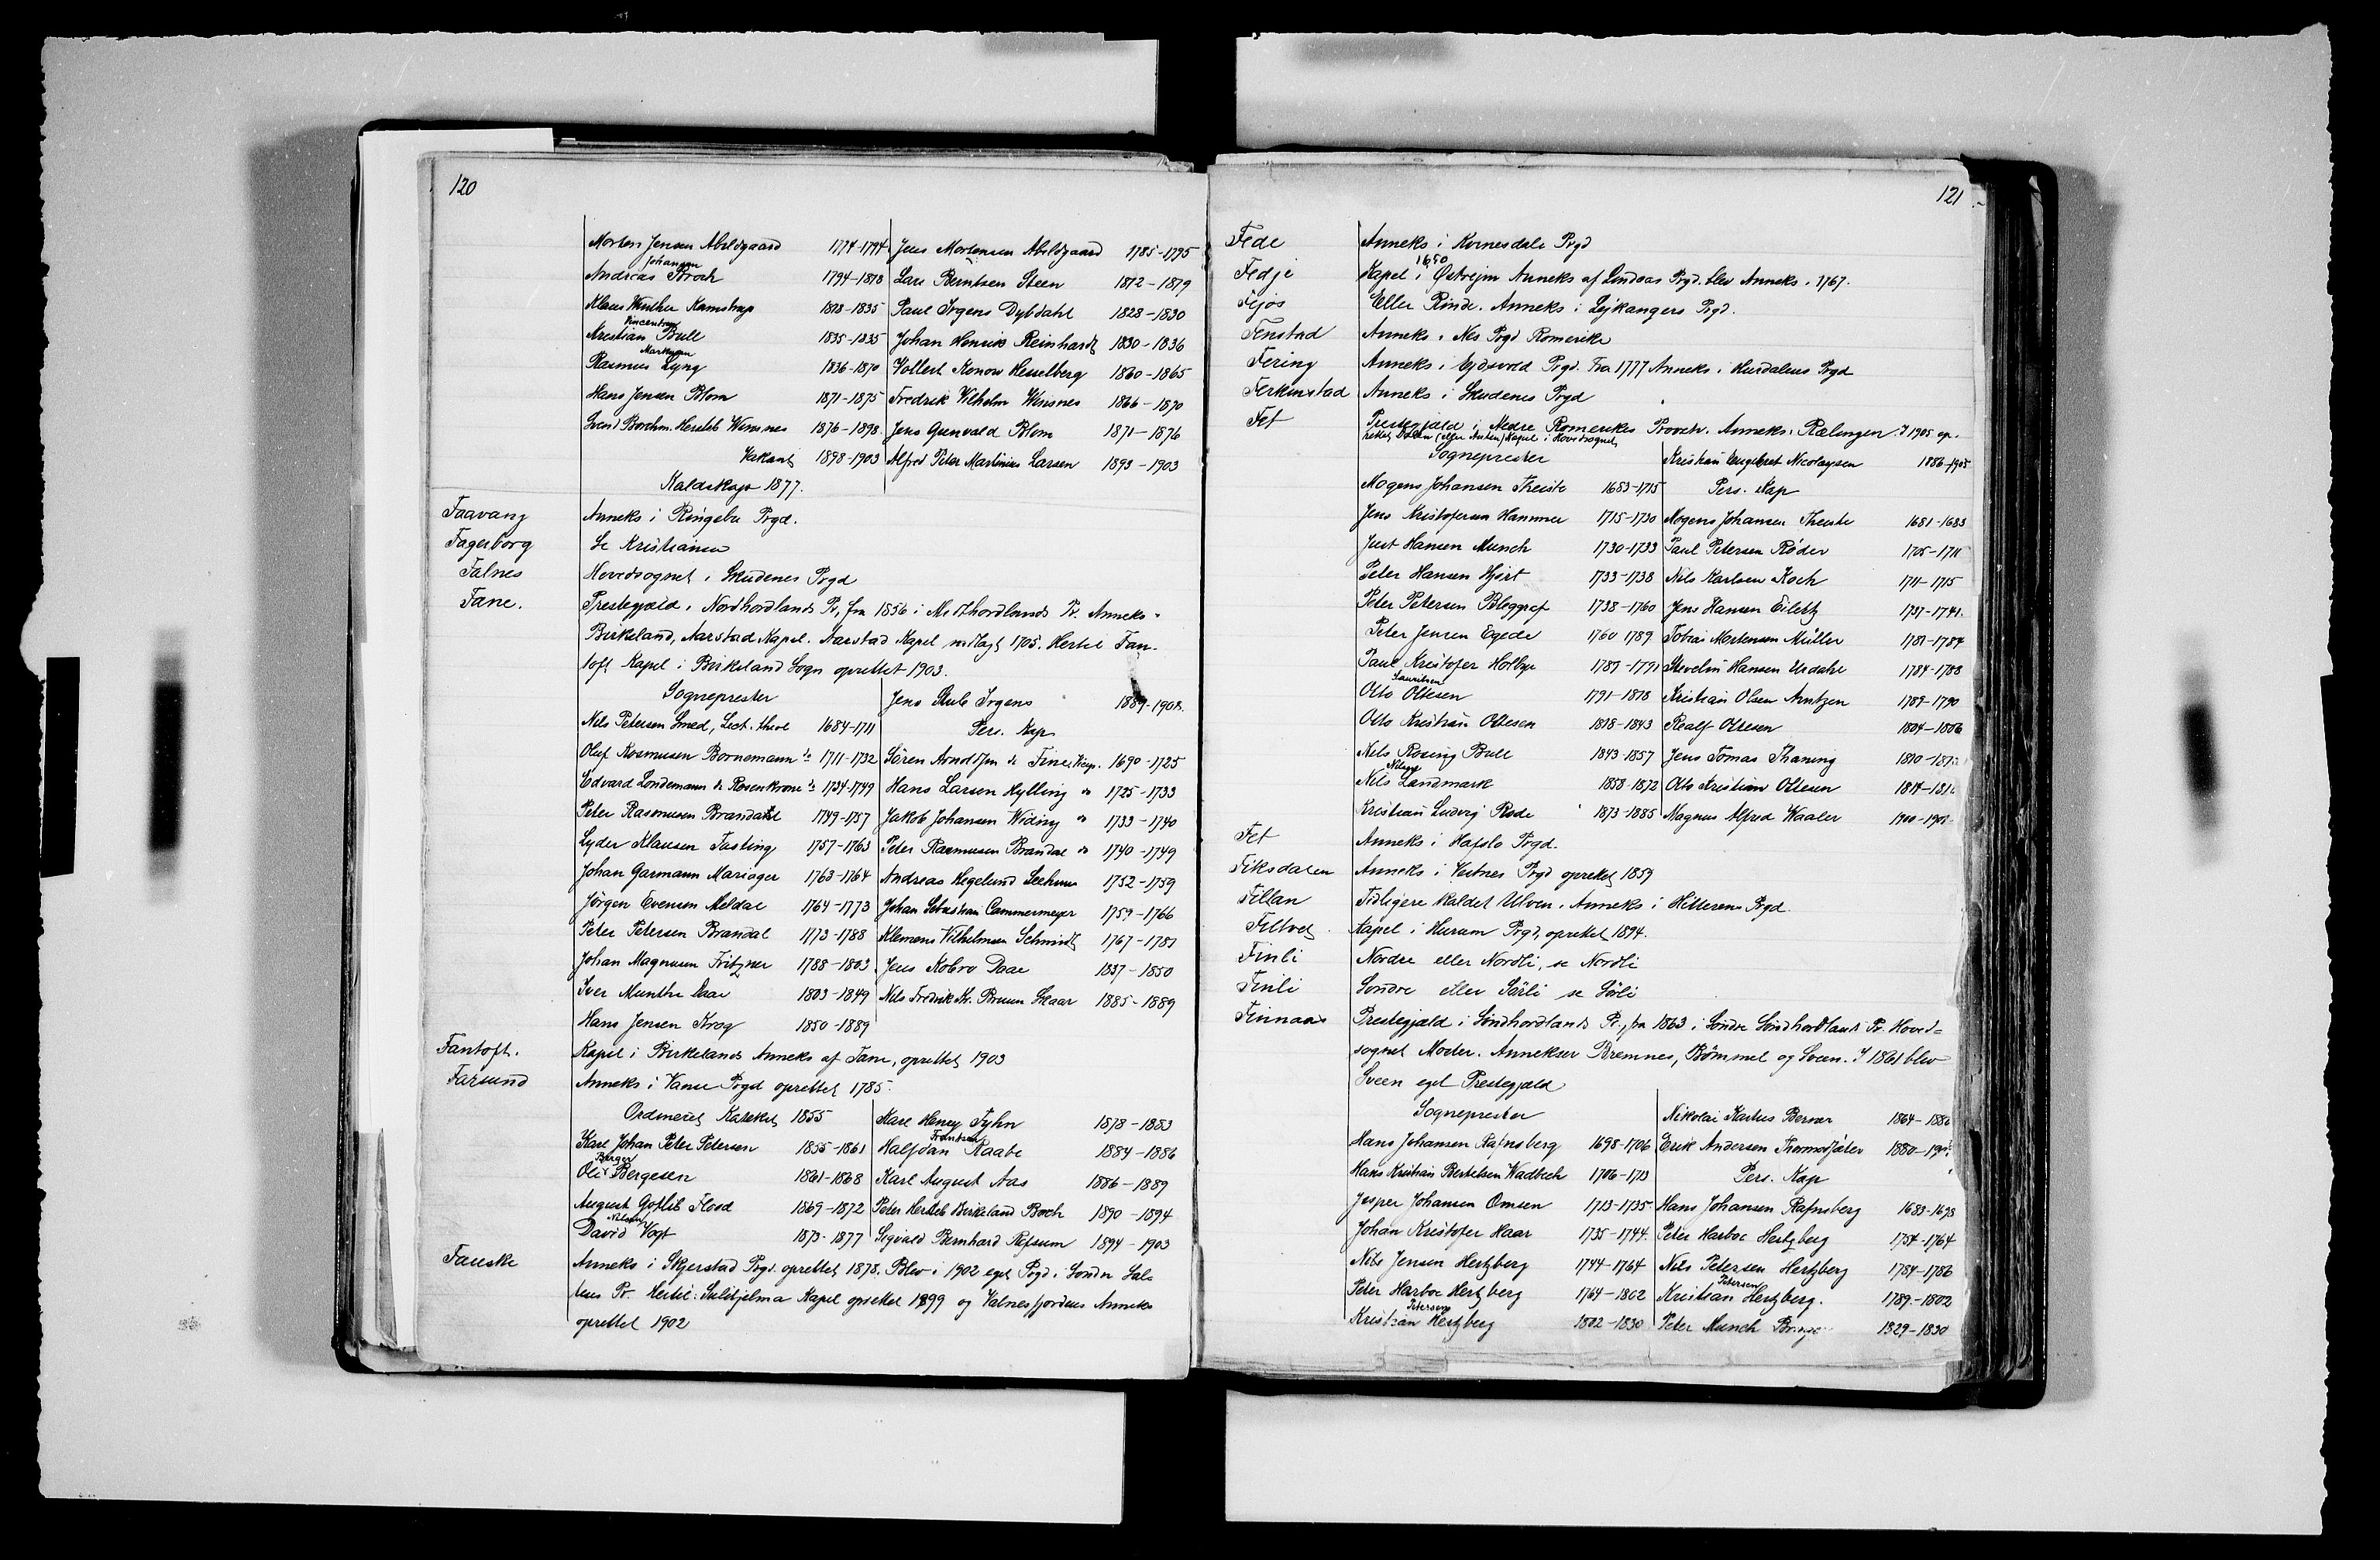 120
Morten Jensen Abildgaard 1774-1794 Jens Mortensen Abildgaard 1785-1795
Johansen
Andreas Broch 1794-1818 Lars Berntsen Steen 1812-1819
Klaus Winther Kamstrup 1818-1835 Paul Irgens Dybdahl 1828-1830
Vincentsen
Kristian Bull 1835-1835 Johan Henrik Reinhardt 1830-1836
Markusen
Rasmus Lyng 1836-1870 Vollert Konow Hesselberg 1860-1865
Hans Jensen Blom 1871-1875 Fredrik Vilhelm Winsnes 1866-1870
Svend Borchm. Hersleb Winsnes 1876-1898. Jens Grenvald Blom 1871-1876
Vakant 1898-1903 Alfred Peter Martinius Larsen 1893-1903
Kaldskap 1877.
Faavang Anneks i Ringebu Prgd.
Fagerborg Se Kristiania
Falnes Hovedsognet i Skudenes Prgd
Fane. Prestegjæld i Nordhordlands Pr, fra 1856 i Midthordlands Pr. Anneks:
Birkeland, Aarstad Kapel. Aarstad Kapel nedlagt 1705. Hertil Fan-
toft Kapel i Birkeland Sogn oprettet 1903.
Sogneprester Jens Stub Irgens 1889-1908.
Nils Petersen Smed, Lect. theol 1684-1711 Pers. Kap
Oluf Rosmusen Bornemann do 1711-1732 Sören Arnoldsen de Fine, Vicep. 1690-1725
Edvard Londemann de Rosenkrone do 1734-1749 Hans Larsen Hylling do 1725-1733
Peter Rasmusen Brandal 1749-1757 Jakob Johansen Widing do 1733-1740
Lyder Klausen Fasting 1757-1763 Peter Rasmusen Brandal do 1740-1749
Johan Garmann Mariager 1763-1764 Andreas Hegelund 1752-1759
Jörgen Evensen Meldal 1764-1773 Johan Sebastian Cammermeyer 1759-1766
Peter Petersen Brandal 1773-1788 Klemens Vilhelmsen Schmidt 1767-1781
Johan Magnusen Fritzner 1788-1803 Jens Kobro Daae 1837-1850
Iver Munthe Daae 1803-1849 Nils Fredrik Kr. Bruun Skaar 1885-1889
Hans Jensen Krog 1850-1889
Fantoft. Kapel i Birkelands Anneks af Fane, oprettet 1903
Farsund Anneks i Vanse Prgd oprettet 1785.
Ordineret Kateket 1855 Karl Henry Fyhn 1878-1883
Frantsen
Karl Johan Peter Petersen 1855-1861 Halfdan Raabe 1884-1886
Berger
Ole Bergesen 1861-1868 Karl August Aas 1886-1889
August Gotlib Flood 1869-1872 Peter Hersleb Birkeland Boch 1890-1894
Nilsen
David Vogt 1873-1877 Sigvald Bernhard Refsum 1894-1903
Fauske Anneks i Skjerstad Prgd. oprettet 1878. Blev i 1902 eget Prgd i Søndre Sal-
tens Pr. Hertil: Sulitjelma Kapel oprettet 1899 og Valnesfjordens Anneks
oprettet 1902
121
Fede Anneks i Kvinesdals Prgd
1650
Fedje Kapel i Østrejm Anneks af Lindaas Prgd. blev Anneks i 1767.
Fejos Eller Rinde. Anneks i Lejkangers Prgd.
Fenstad Anneks i Nes Prgd Romerike
Fering Anneks i Ejdsvold Prgd. Fra 1777 Anneks i Hurdalens Prgd
Ferkinstad Anneks i Skudenes Prgd
Fet Prestegjæld i Nedre Romerikes Provsti. Anneks: Rælingen. I 1905 op.
rettet Dalen (eller Austen) Kapel i Hovedsognet
Sogneprester Kristian Engebret Nicolaysen 1886-1905
Mogens Johansen Theiste 1683-1715 Pers. Kap
Jens Kristofersen Hammer 1715-1730 Mogens Johansen Theiste 1681-1683
Just Hansen Munch 1730-1733 Paul Petersen Røder 1705-1711
Peter Hansen Hjort 1733-1738 Nils Karlsen Koch 1711-1715
Peter Petersen Bloggraf 1738-1760 Jens Hansen Eilertz 1737-1741.
Peter Jensen Egede 1760 1789 Tobias Mortensen Müller 1781-1784
Paul Kristofer Holbye 1789-1791 Stevelin Hansen Urdahl 1784-1788
Lauritsen
Otto Ottesen 1791-1818 Kristian Olsen Arntzen 1789-1790
Otto Kristian Ottesen 1818-1843 Realf Ottesen 1804-1806
Nils Rosing Bull 1843-1857 Jens Tomas Thaning 1810-181
Nilsen
Nils Landmark 1858-1872 Otto Kristian Ottesen 1814-181
Kristian Ludvig Rode 1873-1885 Magnus Alfred Waaler 1900-190
Fet Anneks i Hafslo Prgd.
Fiksdalen Anneks i Vestnes Prgd oprettet 1859
Fillan Tidligere kaldet Ulven. Anneks i Hitterens Prgd
Filtvet Kapel i Hurum Prgd, oprettet 1894.
Finli Nordre eller Nordli, se Nordli
Finli Søndre eller Sørli se Sørli
Finnaas Prestegjæld i Søndhordlands Pr., fra 1863 i Søndre Søndhordlands Pr. Hoved-
sognet Moster. Annekser Bremnes, Bømmel og Sveen. I 1861 blev
Sveen eget Prestegjæld
Sogneprester Nikolai Kartius Berner 1864-1880
Hans Johansen Rafnsberg 1698-1706 Erik Andersen Thormodsæter 1880-190
Hans Kristian Bertelsen Wadbech 1706-1713 Pers. Kap
Jesper Johansen Omsen 1713-1735 Hans Johansen Rafnsberg 1683-1698
Johan Kristofer Haar 1735-1744. Peter Harboe Hertzberg 1754-1764
Nils Jensen Hertzberg 1744-1764 Nils Petersen Hertzberg 1784-1786
Petersen
Peter Harboe Hertzberg 1764-1802 Kristian Hertzberg. 1789-1802
Petersen
Kristian Hertzberg 1802-1830 Peter Munch 1829-1830